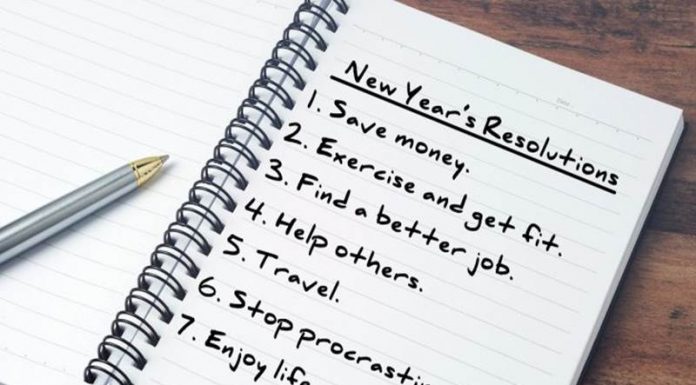 New Year's Resolutions
1. Save money.
2. Exercise and get fit.
3. Find a better job.
4. Help others.
5. Travel.
6. Stop
7. Enjoy